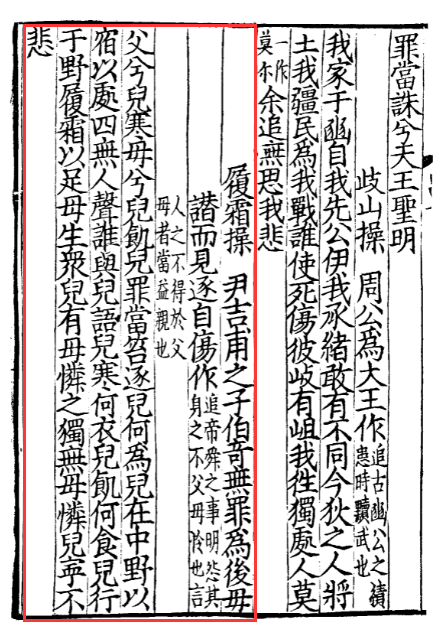 罪當誅兮天王聖明
歧山操 周公為大王作追古豳公之積
患時黷武也
我家于豳自我先公伊我承緒敢有不同今狄之人將
土我疆民為我戰誰使死傷彼歧有岨我徃獨處人莫
一作
莫尓余追無思我悲
履霜操 尹吉甫之子伯奇無罪為後母
譖而見逐自傷作追帝舜之事明怨其
身之不父母怜也言
人之不得於父
母者當益親也
父兮兒寒母兮兒飢兒罪當笞逐兒何為兒在中野以
宿以處四無人聲誰與兒語兒寒何衣兒飢何食兒行
于野履霜以足母生衆兒有母憐之獨無母憐兒寧不
悲